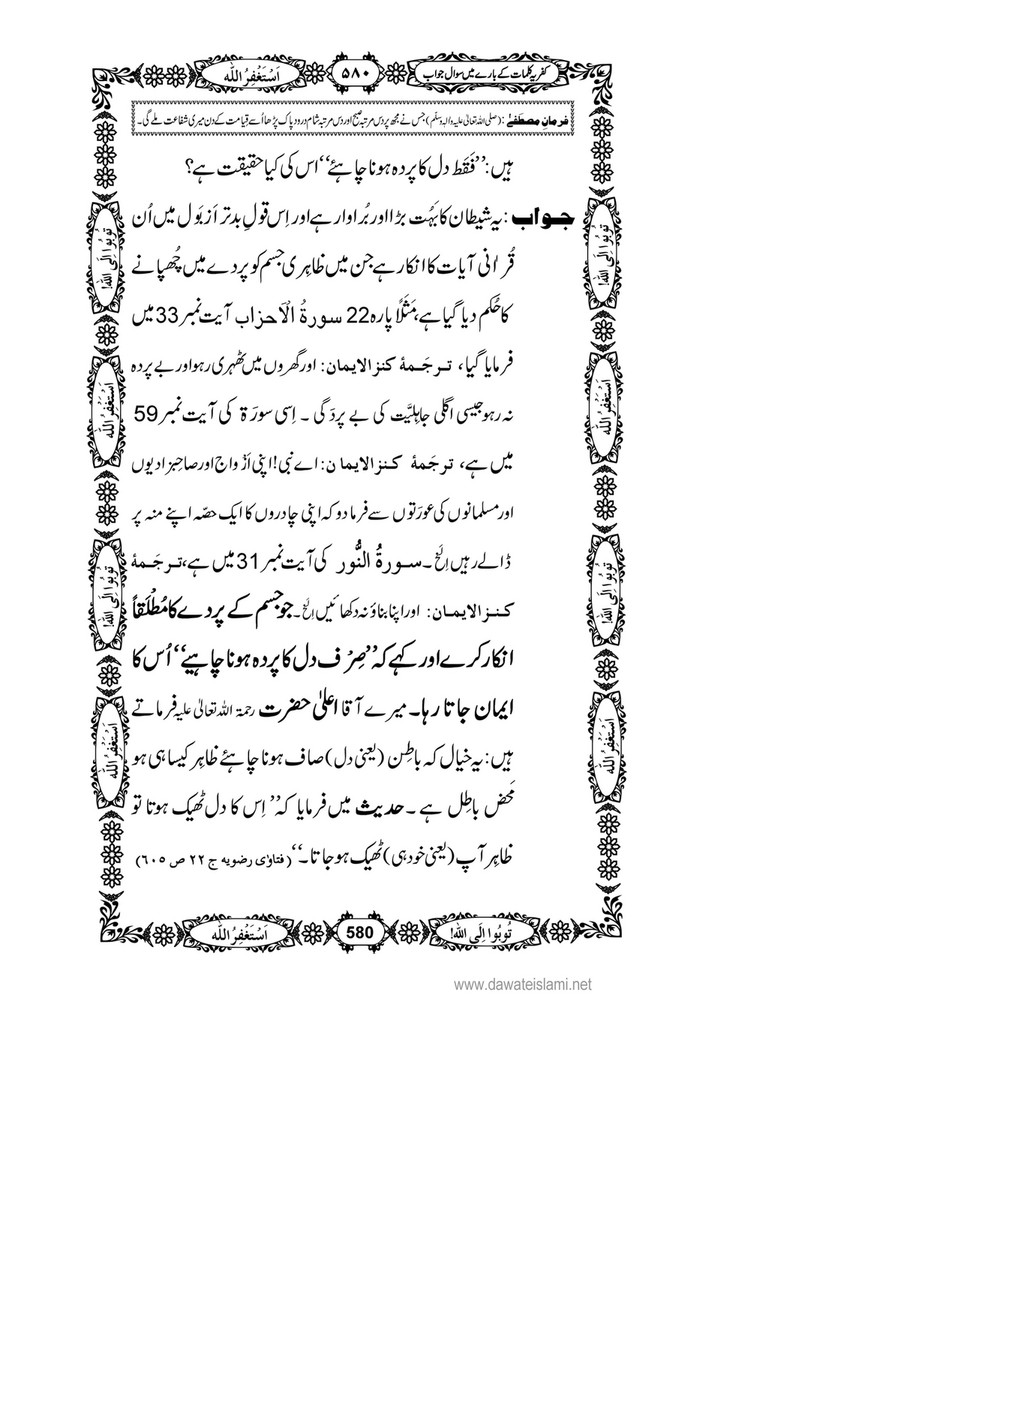 کفریہ کلمات کے بارے میں سوال جواب
۵۸۰
اَسْتَغْفِرُاللّٰه
فرمانِ مصطَفٰے : (صلی اللہ تعالیٰ علیہ والہٖ وسلّم) جس نے مجھ پر دس مرتبہ صبح اور دس مرتبہ شام درودِ پاک پڑھا اُسے قیامت کے دن میری شفاعت ملے گی۔
ہیں: ’’فَقَط دل کا پردہ ہونا چاہئے‘‘ اس کی کیا حقیقت ہے؟
جواب: یہ شیطان کا بَہُت بڑا اور بُرا وار ہے اور اِس قولِ بدتر اَز بَول میں اُن
قُراٰنی آیات کا انکار ہے جن میں ظاہِری جسم کو پردے میں چُھپانے
کا حُکم دیا گیا ہے، مَثَلاً پارہ 22 سورۃُ الْاَحزاب آیت نمبر 33 میں
فرمایا گیا، ترجَمۂ کنزالایمان: اور گھروں میں ٹھہری رہو اور بے پردہ
نہ رہو جیسی اگلی جاہِلیَّت کی بے پردَگی ۔ اِسی سورَۃ کی آیت نمبر 59
میں ہے، ترجَمۂ کنزالایمان: اے نبی! اپنی اَزْواج اور صاحِبزادیوں
اور مسلمانوں کی عورَتوں سے فرما دو کہ اپنی چادروں کا ایک حصّہ اپنے منہ پر
ڈالے رہیں اِلَخ۔ سورۃُ النُّور کی آیت نمبر 31 میں ہے، ترجَمۂ
کنزالایمان: اور اپنا بناؤ نہ دکھائیں اِلَخ۔ جو جسم کے پردے کا مُطْلَقاً
انکار کرے اور کہے کہ ’’صِرْف دل کا پردہ ہونا چاہیے‘‘ اُس کا
ایمان جاتا رہا۔ میرے آقا اعلیٰ حضرت رحمۃ اللہ تعالیٰ علیہ فرماتے
ہیں: یہ خیال کہ باطِن (یعنی دل) صاف ہونا چاہئے ظاہِر کیسا ہی ہو
مَحْض باطِل ہے ۔ حدیث میں فرمایا کہ ’’اِس کا دل ٹھیک ہوتا تو
ظاہِر آپ (یعنی خود ہی) ٹھیک ہو جاتا۔‘‘ (فتاوٰی رضویہ ج ۲۲ ص ۶۰۵)
تُوبُوا اِلَی اللّٰه!
اَسْتَغْفِرُاللّٰه
تُوبُوا اِلَی اللّٰه!
اَسْتَغْفِرُاللّٰه
تُوبُوا اِلَی اللّٰه!
اَسْتَغْفِرُاللّٰه
تُوبُوا اِلَی اللّٰه!
اَسْتَغْفِرُاللّٰه
تُوبُوا اِلَی اللّٰه!
580
اَسْتَغْفِرُاللّٰه
www.dawateislami.net